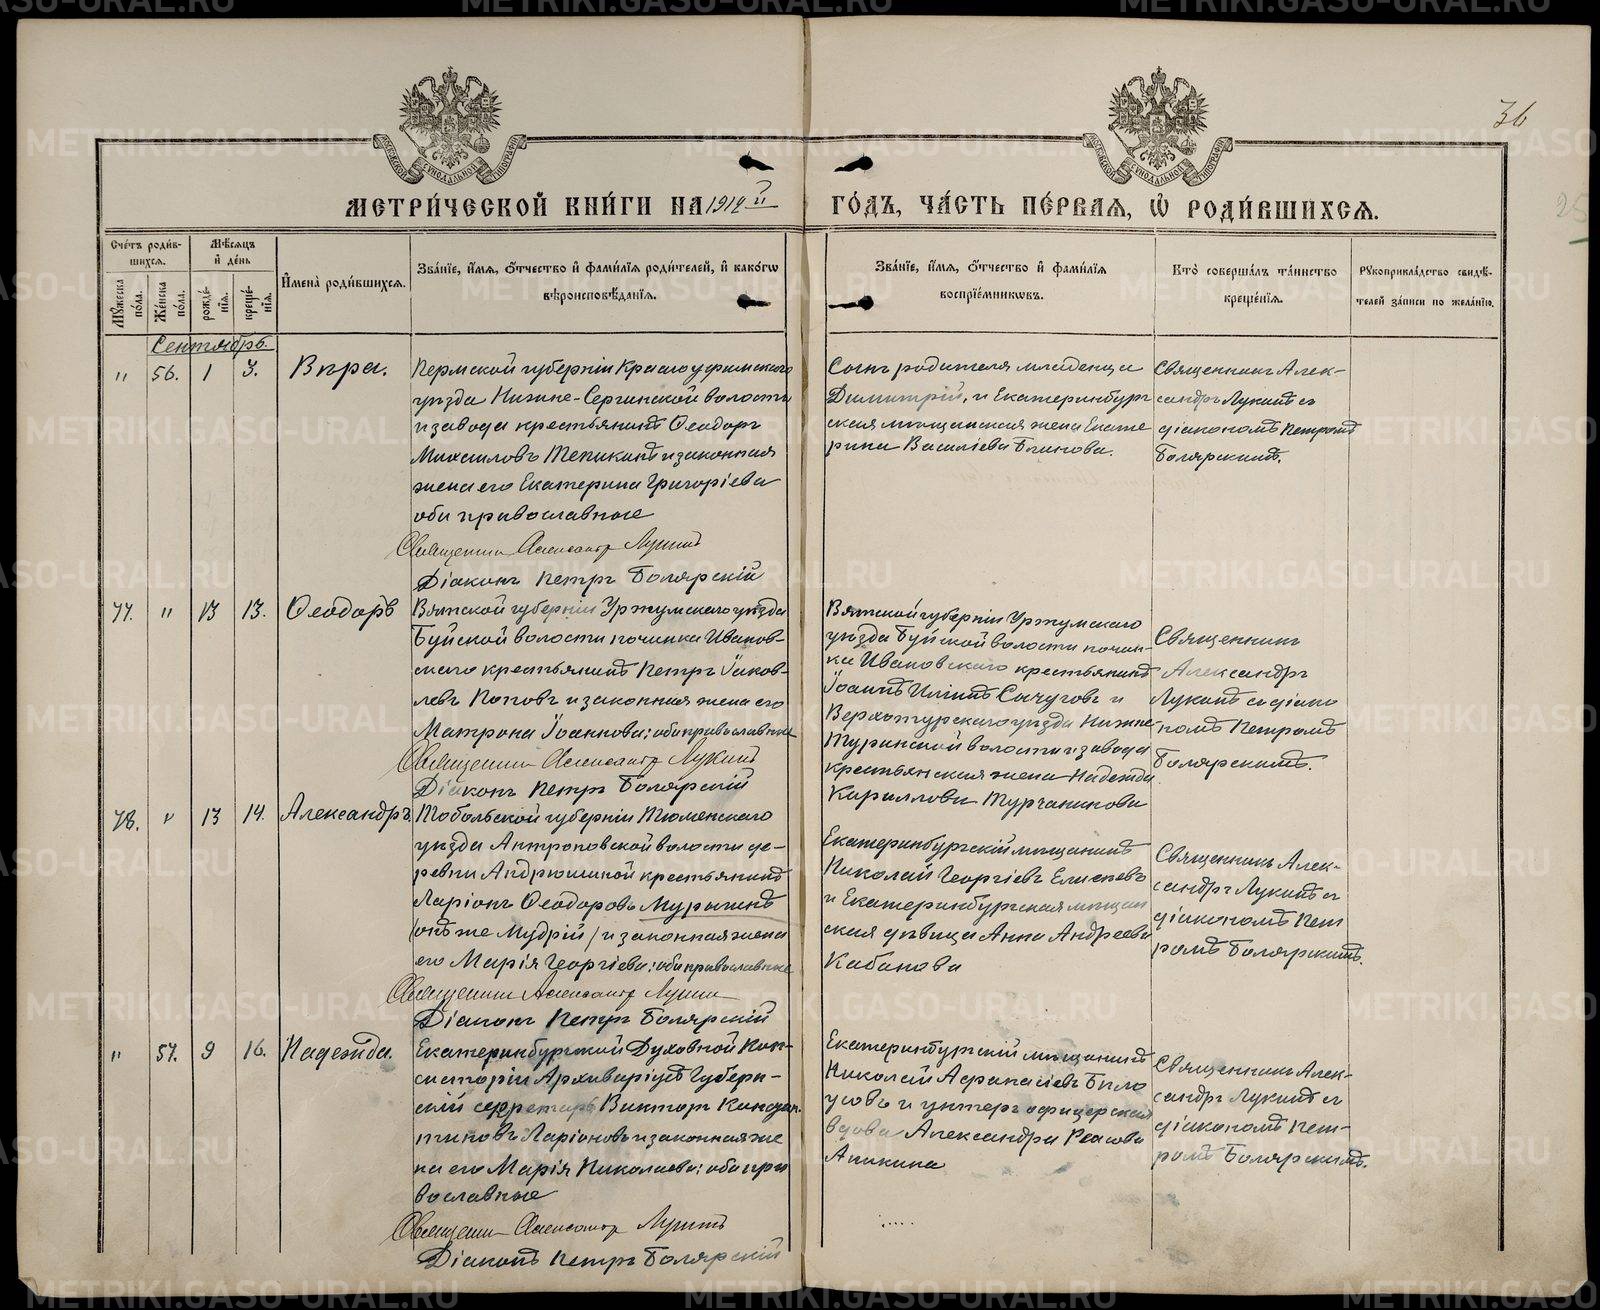 36
25
МОСКОВСКОЙ СѴНОДАЛЬНОЙ ТИПОГРАФІИ
МОСКОВСКОЙ СѴНОДАЛЬНОЙ ТИПОГРАФІИ
МЕТРИ́ЧЕСКОЙ КНИ́ГИ НА 1912 й ГО́ДЪ, ЧА́СТЬ ПЕ́РВАЯ, Ѡ РОДИ́ВШИХСЯ.
Сче́тъ роди́вшихся.
Му́жеска по́ла.
Же́нска по́ла.
Мѣ́сяцъ и де́нь
рожде́нїя.
креще́нїя.
Имена̀ роди́вшихся.
Зва́нїе, и́мя, о́тчество и фами́лїя роди́телей, и како́гѡ вѣроисповѣ́данїя.
Зва́нїе, и́мя, о́тчество и фами́лїя воспрїе́мникѡвъ.
Кто̀ соверша́лъ та́инство креще́нїя.
Рукоприкла́дство свидѣ́телей за́писи по жела́нїю.
Сентябрь.
" 56. 1 3. Вѣра.
Пермской губерніи Красноуфимскаго
уѣзда Нижне-Сергинской волости
и завода крестьянинъ Ѳеодоръ
Михаиловъ Тепикинъ и законная
жена его Екатерина Григоріева
оба православные
Священник Александр Лукинъ
Діаконъ Петръ Болярскій
Сынъ родителя младенца
Димитрій, и Екатеринбург
ская мѣщанская жена Екате
рина Василіева Блинова.
Священникъ Алек-
сандръ Лукинъ съ
діакономъ Петромъ
Болярскимъ.
77. " 13 13. Ѳеодоръ
Вятской губерніи Уржумскаго уѣзда
Буйской волости починка Иванов-
скаго крестьянинъ Петръ Іаков-
левъ Поповъ и законная жена его
Матрона Іоаннова; оба православные
Священник Александр Лукинъ
Діаконъ Петръ Болярскій
Вятской губерніи Уржумскаго
уѣзда Буйской волости почин-
ка Ивановскаго крестьянинъ
Іоаннъ Иліинъ Сычуговъ и
Верхотурскаго уѣзда Нижне-
Туринской волости и завода
крестьянская жена Надежда
Кириллова Турчанинова
Священникъ
Александръ
Лукинъ съ діако
номъ Петромъ
Болярскимъ.
78. " 13 14. Александръ
Тобольской губерніи Тюменскаго
уѣзда Антроповской волости де-
ревни Андрюшиной крестьянинъ
Ларіонъ Ѳеодоровъ Мурычинъ
(онъ же Мудрій) и законная жена
его Марія Георгіева; оба православные
Священник Александр Лукин
Діаконъ Петръ Болярскій
Екатеринбургскій мѣщанинъ
Николай Георгіевъ Елисѣевъ
и Екатеринбургская мѣщан
ская дѣвица Анна Андреева
Кабанова
Священникъ Алек-
сандръ Лукинъ съ
діакономъ Пет
ромъ Болярскимъ.
" 57. 9 16. Надежда.
Екатеринбургской Духовной Кон-
систоріи Архиваріусъ Губерн-
скій секретарь Викторъ Констан
тиновъ Ларіоновъ и законная же
на его Марія Николаева; оба пра
вославные
Священник Александр Лукинъ
Діаконъ Петръ Болярскій
Екатеринбургскій мѣщанинъ
Николай Аѳанасіевъ Бѣло
усовъ и унтеръ офицерская
вдова Александра
Аникина
Священникъ Алек-
сандръ Лукинъ съ
діакономъ Пет-
ромъ Болярскимъ.
METRIKI.GASO-URAL.RU